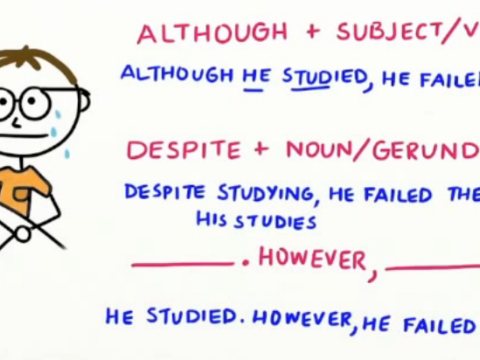 ALTHOUGH + SUBJECT/V
ALTHOUGH HE STUDIED, HE FAILED
DESPITE + NOUN/GERUND
DESPITE STUDYING, HE FAILED THE
HIS STUDIES
______. HOWEVER, ______
HE STUDIED. HOWEVER, HE FAILED